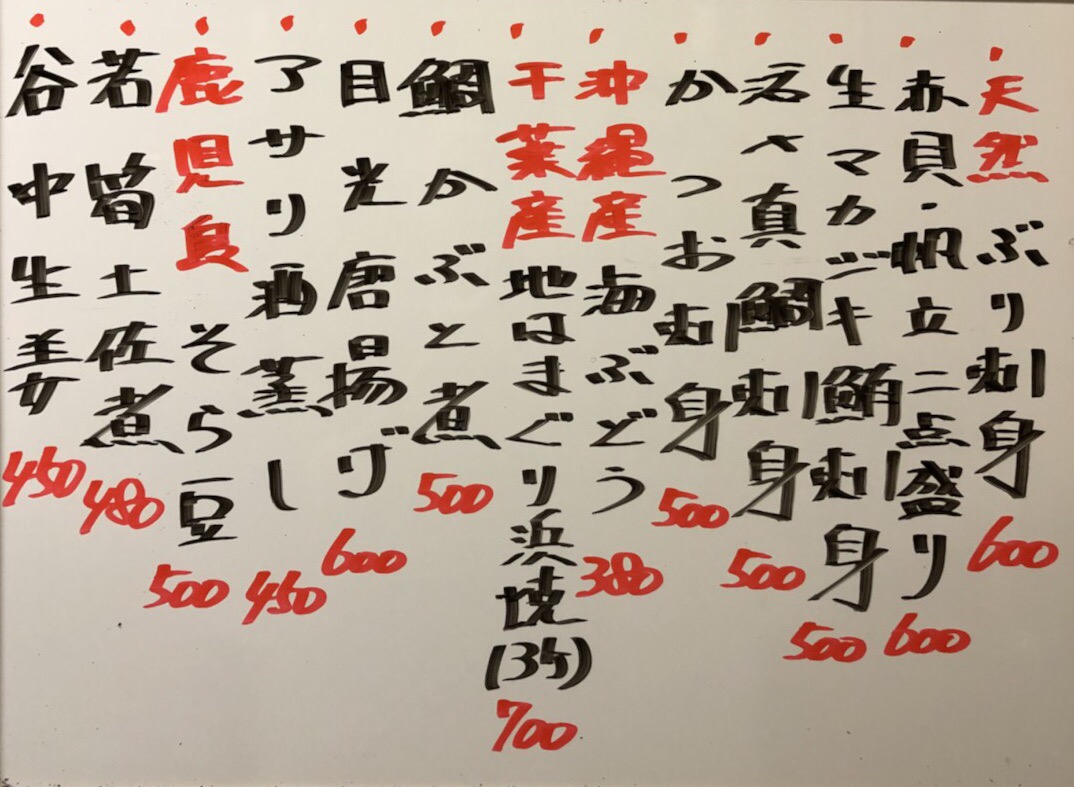 天然ぶり刺身 600
赤貝・帆立二点盛り 600
生マカジキ鮪刺身 500
真鯛刺身 500
かつお刺身 500
沖縄産海ぶどう 380
千葉産地はまぐり浜焼(3ヶ) 700
鯛かぶと煮 500
目光唐揚げ 600
アサリ酒蒸し 450
鹿児島そら豆 500
若筍土佐煮 480
谷中生姜 450